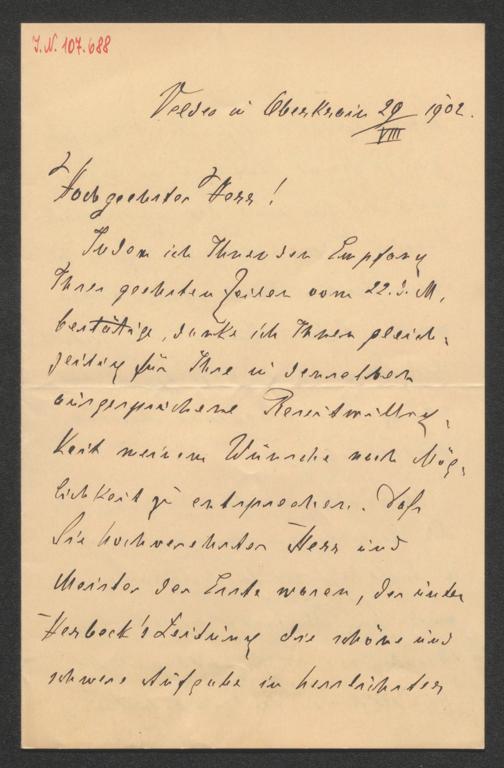 I.N. 107.688
Veldes in Oberkrain 29/VIII 1902.
Hochgeehrter Herr!
Indem ich Ihnen den Empfang
Ihrer geehrten Zeilen vom 22. d. M,
bestätige, danke ich Ihnen gleich-
zeitig für Ihre in denselben
ausgesprochene Bereitwillig-
keit meinem Wunsche nach Mög-
lichkeit zu entsprechen. Daß
Sie hochverehrter Herr und
Meister der Erste waren, der unter
Herbeck's Leitung die schöne und
schwere Aufgabe in herrlichster